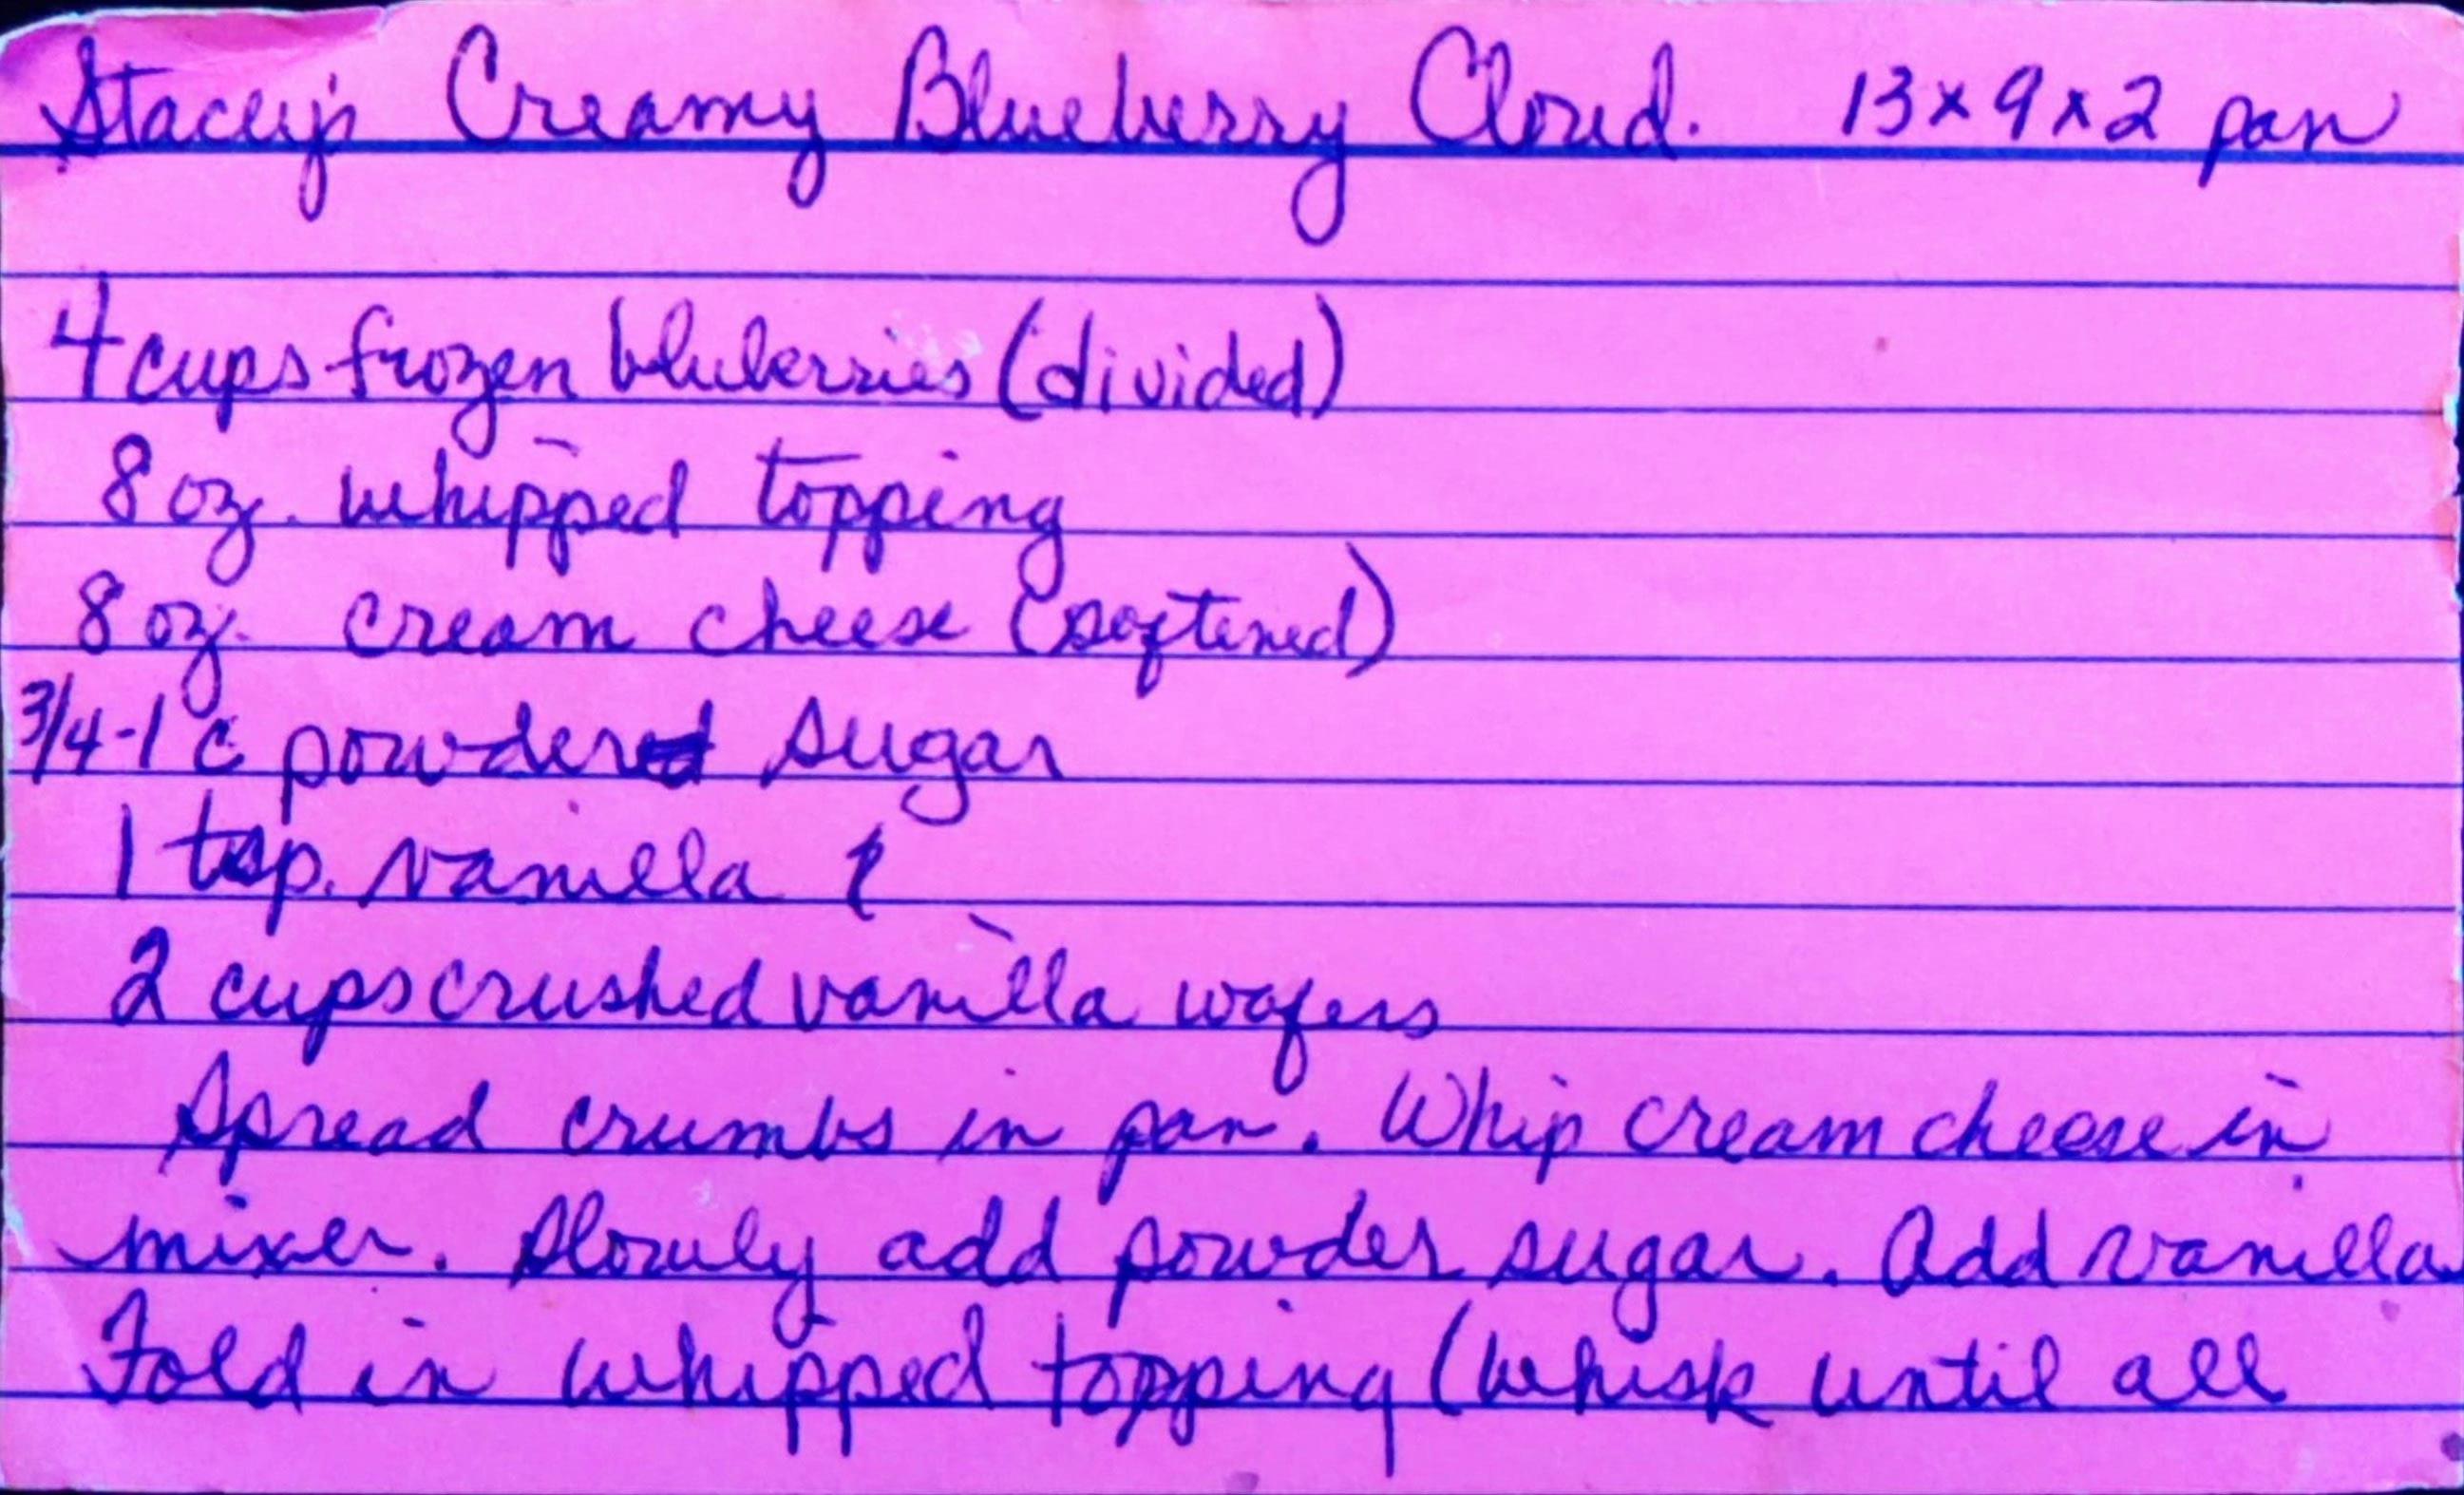 Stacey's Creamy Blueberry Cloud. 13x9x2 pan
4 cups frozen bluberries (divided)
8 oz. whipped topping
8 oz. cream cheese (softened)
3/4-1 c powdered sugar
1 tsp. vanilla
2 cups crushed vanilla wafers
Spread crumbs in pan. Whip cream cheese in
mixer. Slowly add powder sugar. Add vanilla.
Fold in whipped topping (whisk until all